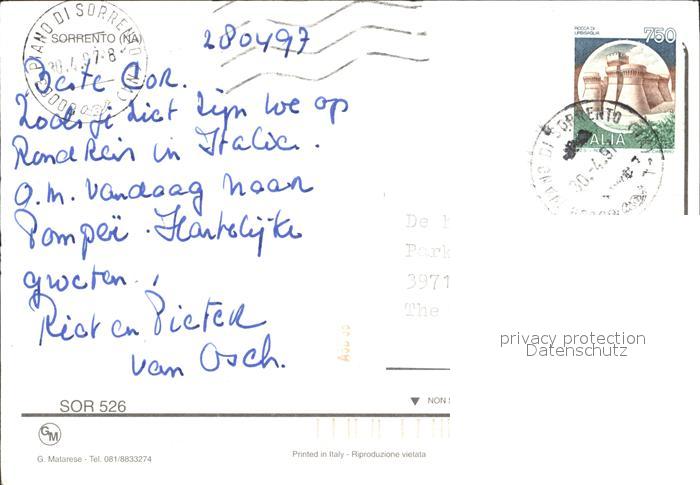 SORRENTO (NA)
280497
Beste Cor.
Zoals je ziet zijn we op
Rondreis in Italie.
O.m. vandaag naar
Pompeï. Hartelijke
groeten.
Riet en Pieter
van Osch.
SOR 526
GM
G. Matarese - Tel. 081/8833274
Printed in Italy - Riproduzione vietata
▼ NON
ROCCA DI
URBISAGLIA
750
ITALIA
PIANO DI SORRENTO
30.-4.97-8
PIANO DI SORRENTO
30.-4.97
De
Park
3971
The
privacy protection
Datenschutz